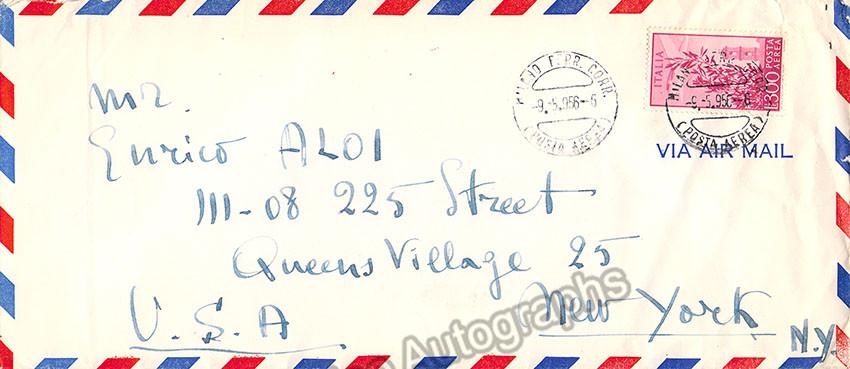 ITALIA
POSTA AEREA
L.300
MILANO FERR. CORR.
-9.-5.956-6
(POSTA AEREA)
MILAN
-9.-5.956-6
(POSTA AEREA)
VIA AIR MAIL
Mr.
Enrico ALOI
111-08 225 Street
Queens Village 25
New York N.Y.
U.S.A
Autographs